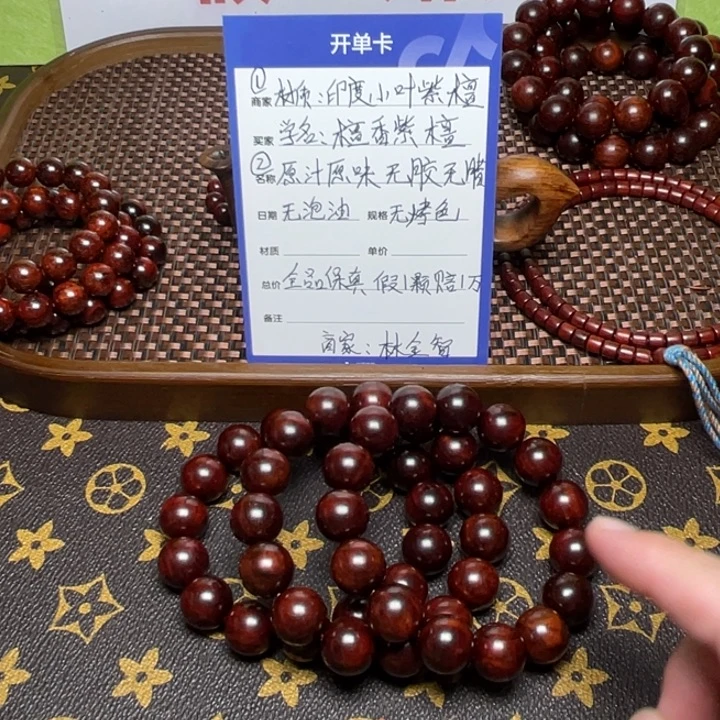 开单卡
① 商家 材质:印度小叶紫檀
买家 学名:檀香紫檀
② 名称 原汁原味 无胶无腊
日期 无泡油 规格 无烤色
材质 单价
总价 全品保真 假1颗赔1万
备注
商家:林全智